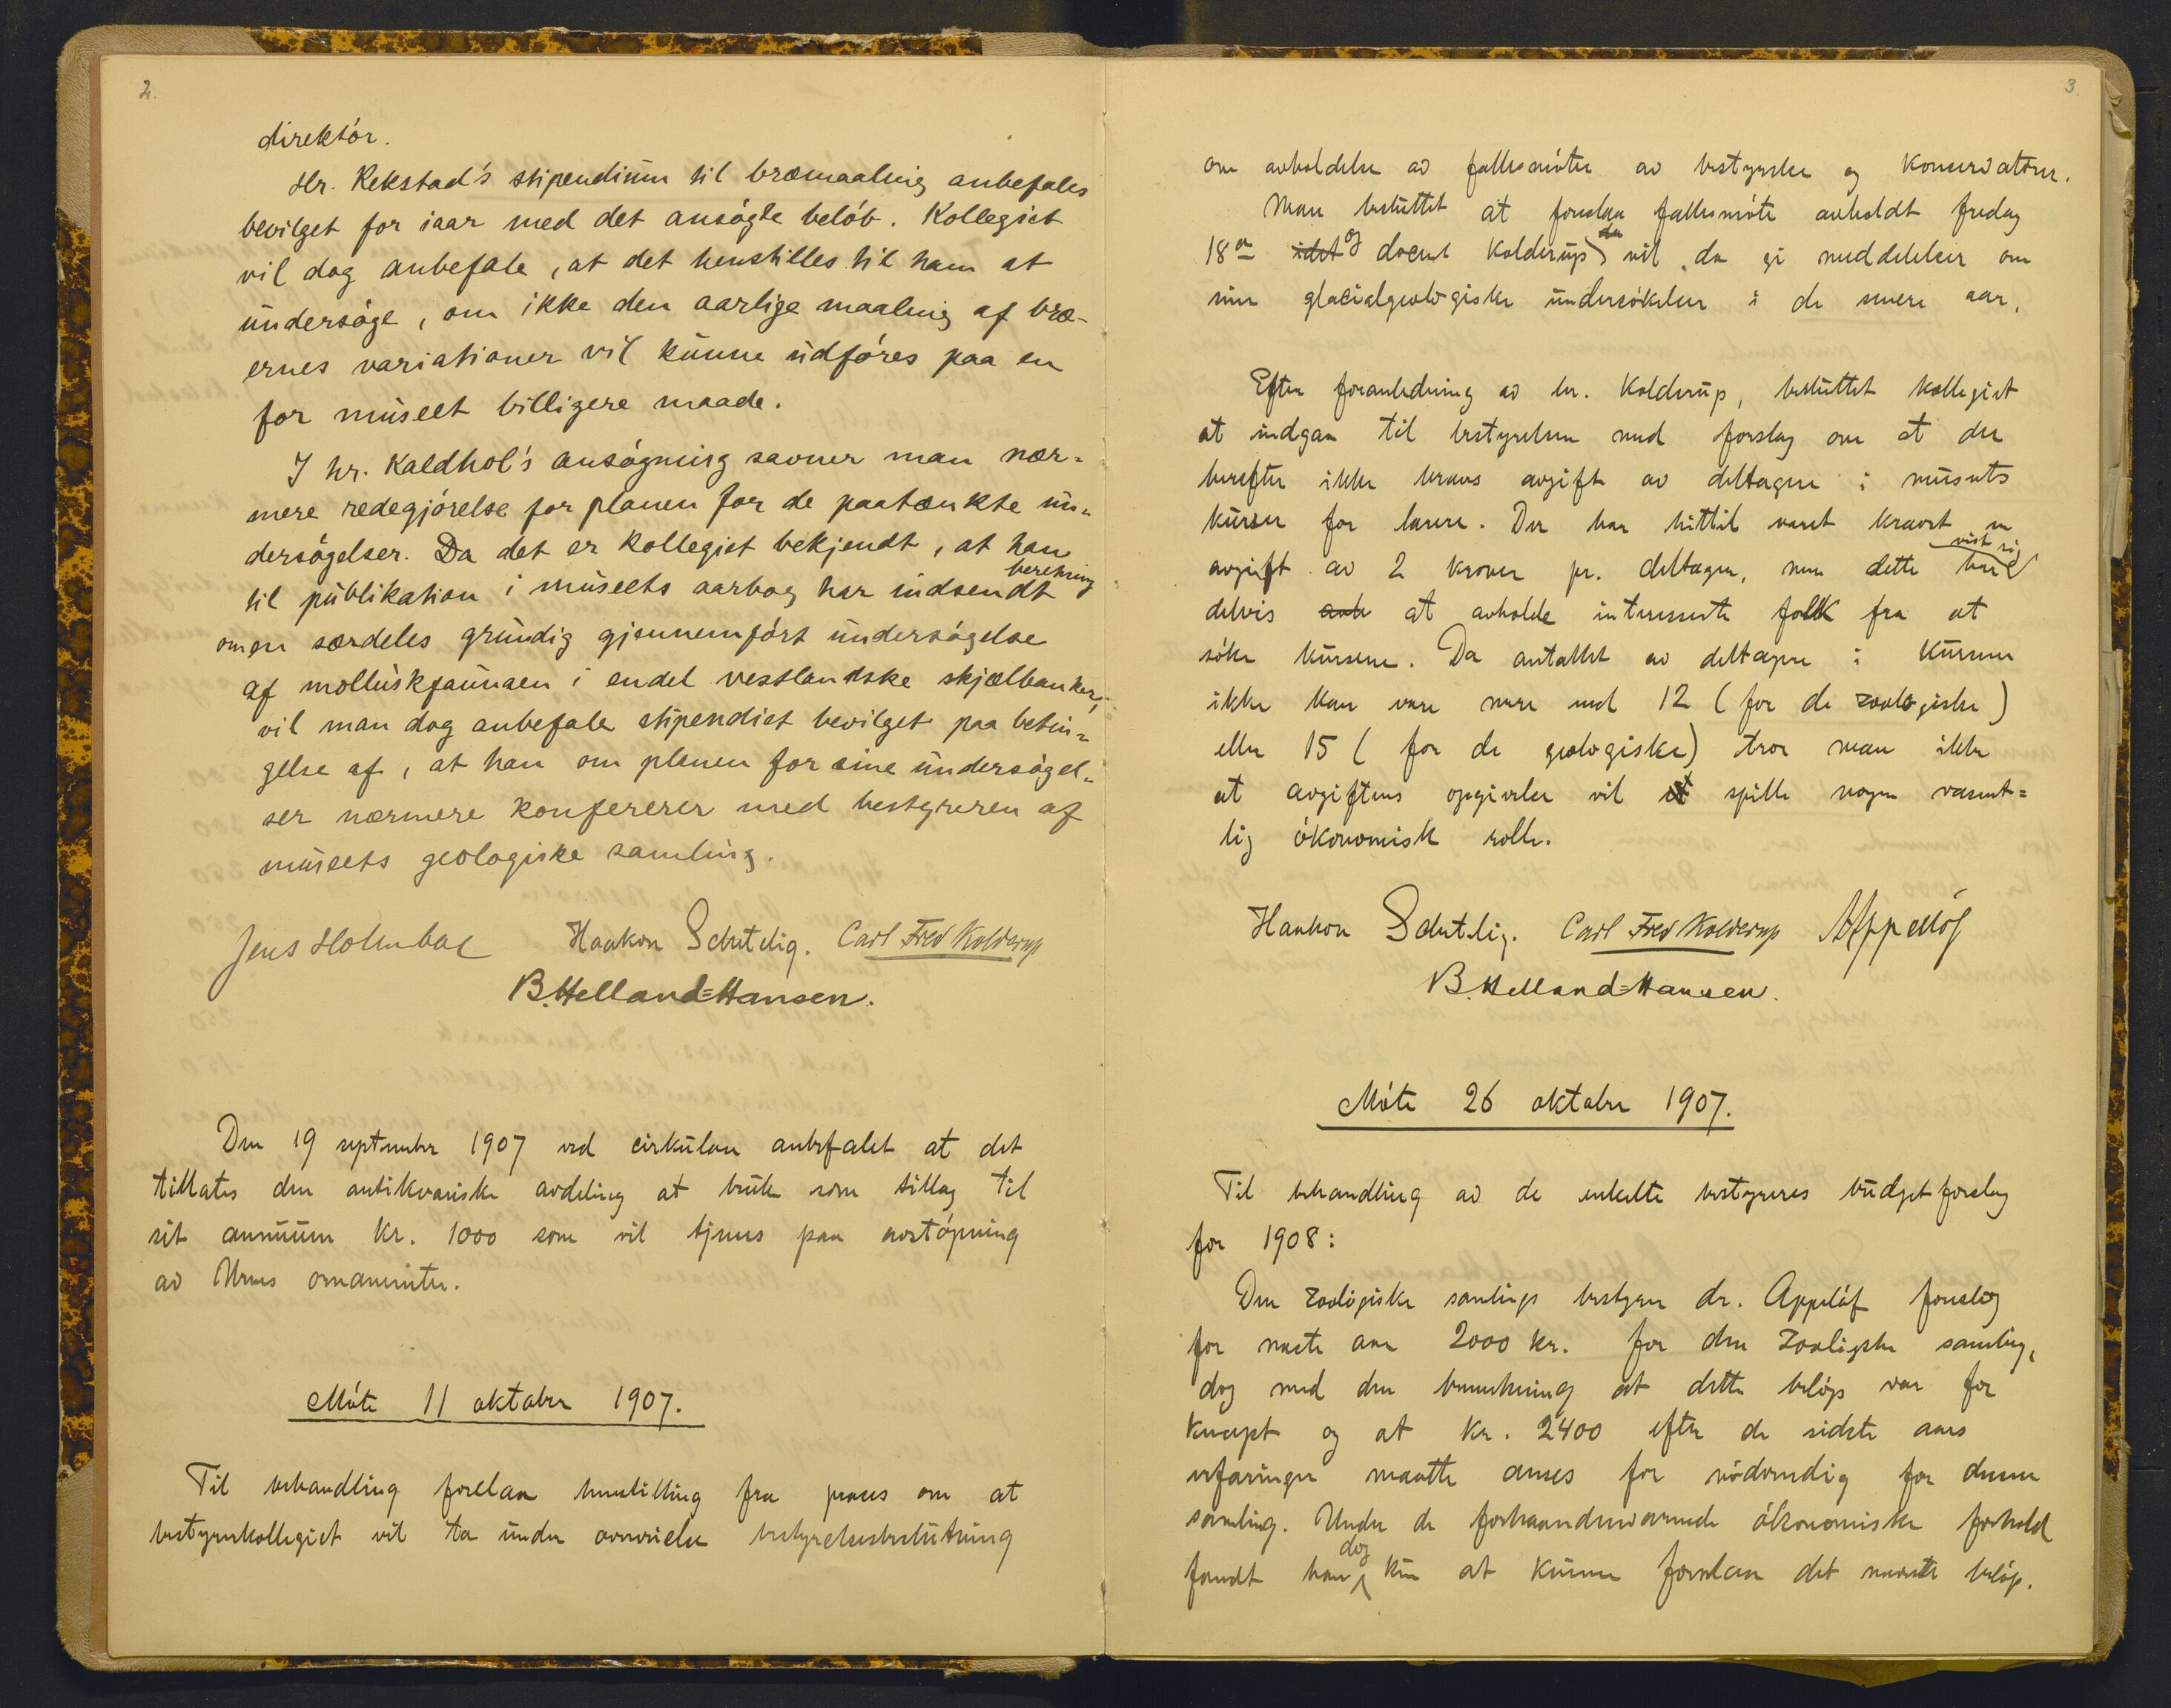 2.
direktör.
Hr. Rekstad's stipendium til bræmaaling anbefales
bevilget for iaar med det ansøgte beløb. Kollegiet
vil dog anbefale, at det henstilles til ham at
undersøge, om ikke den aarlige maaling af bræ-
ernes variationer vil kunne udføres paa en
for museet billigere maade.
I hr. Kaldhol's ansøgning savner man nær-
mere redegjörelse for planen for de paatænkte un-
dersøgelser. Da det er kollegiet bekjendt, at han
til publikation i museets aarbog har indsendt beretning
om en særdeles grundig gjennemført undersøgelse
af molluskfaunaen i endel vestlandske skjælbanker,
vil man dog anbefale stipendiet bevilget paa betin-
gelse af, at han om planen for sine undersøgel-
ser nærmere konfererer med bestyreren af
museets geologiske samling.
Jens Holmboe Haakon Schetelig. Carl Fred Kolderup
B. Helland-Hansen.
Den 19 september 1907 ved cirkulære anbefalet at det
tillates den antikvariske avdeling at bruke som tillæg til
sit annuum kr. 1000 som vil tjenes paa avstøpning
av Urnes ornamenter.
Møte 11 oktober 1907.
Til behandling forelaa henstilling fra præses om at
bestyrerkollegiet vil ta under overveielse bestyrelsesbeslutning
3.
om avholdelse av fællesmøter av bestyrelse og konservatorer.
Man besluttet at foreslaa fællesmøte avholdt fredag
18de idet og docent Kolderup da vil da gi meddelelser om
sine glacialgeologiske undersøkelser i de senere aar.
Efter foranledning av hr. Kolderup, besluttet kollegiet
at indgaa til bestyrelsen med forslag om at der
herefter ikke kræves avgift av deltagere i museets
kurser for lærere. Der har hittil været krævet en
avgift av 2 kroner pr. deltager, men dette har vist sig
delvis at avholde interesserte folk fra at
søke kursene. Da antallet av deltagere i kursene
ikke kan være mere end 12 (for de zoologiske)
eller 15 (for de geologiske) tror man ikke
at avgiftens opgivelse vil spille nogen væsent=
lig økonomisk rolle.
Haakon Schetelig. Carl Fred Kolderup A Appelløf
B. Helland-Hansen.
Møte 26 oktober 1907.
Til behandling av de enkelte bestyreres budgetforslag
for 1908:
Den zoologiske samlings bestyrer dr. Appeløf foreslog
for næste aar 2000 kr. for den zoologiske samling,
dog med den bemerkning at dette beløp var for
knapt og at kr. 2400 efter de sidste aars
erfaringer maatte anses for nødvendig for denne
samling. Under de forhaandenværende økonomiske forhold
fandt han dog kun at kunne foreslaa det nævnte beløp.